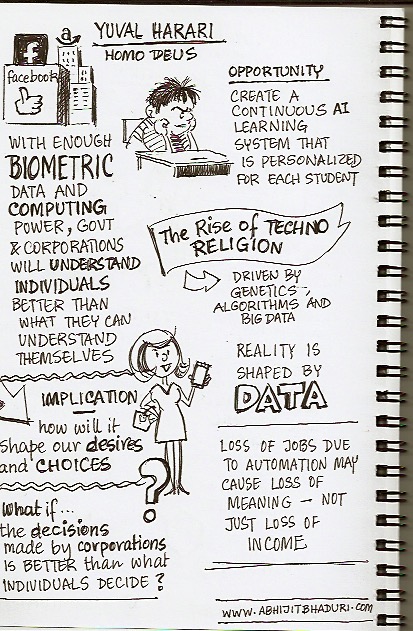 YUVAL HARARI
HOMO DEUS
f
a
facebook
WITH ENOUGH
BIOMETRIC
DATA AND
COMPUTING
POWER, GOVT
& CORPORATIONS
WILL UNDERSTAND
INDIVIDUALS
BETTER THAN
WHAT THEY CAN
UNDERSTAND
THEMSELVES
IMPLICATION
how will it
shape our desires
and CHOICES
?
What if...
the decisions
made by corporations
IS BETTER than what
INDIVIDUALS DECIDE?
OPPORTUNITY
CREATE A
CONTINUOUS AI
LEARNING
SYSTEM THAT
IS PERSONALIZED
FOR EACH STUDENT
The Rise of TECHNO
RELIGION
DRIVEN BY
GENETICS,
ALGORITHMS AND
BIG DATA
REALITY IS
SHAPED BY
DATA
LOSS OF JOBS DUE
TO AUTOMATION MAY
CAUSE LOSS OF
MEANING - NOT
JUST LOSS OF
INCOME
WWW.ABHIJITBHADURI.COM